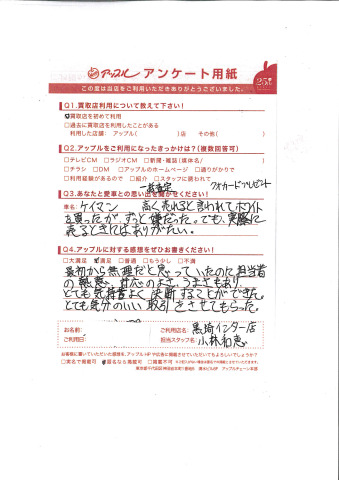 アップル アンケート用紙
25th
この度は当店をご利用いただきありがとうございました。
Q1.買取店利用について教えて下さい!
買取店を初めて利用
□過去に買取店を利用したことがある
利用した店舗: アップル( )店 その他( )
Q2.アップルをご利用になったきっかけは?(複数回答可)
□テレビCM □ラジオCM □新聞・雑誌(媒体名/ )
□チラシ □DM □アップルのホームページ □通りがかりで
□利用経験があるので □紹介 □スタッフに誘われて
一括査定 クオカードプレゼント
Q3.あなたと愛車との思い出を聞かせください!
車名: ケイマン 高く売れると言われてホワイト
を買ったが、ずっと嫌だった。でも、実際に
売るときにはありがたい。
Q4.アップルに対する感想をぜひお書きください!
□大満足 満足 □普通 □もう少し □不満
最初から無理だと思っていたのに担当者
の熱意、対応のよさ、うまさもあり
とても気持よく決断することができた。
とても気分のいい取引をさせてもらった。
お名前: ご利用店名: 黒埼インター店
ご利用日: 担当スタッフ名: 小林和志
お客様に書いていただいた感想を、アップルHPや広告に掲載させていただいてもよろしいでしょうか?
□実名で掲載可 匿名なら掲載可 □掲載不可